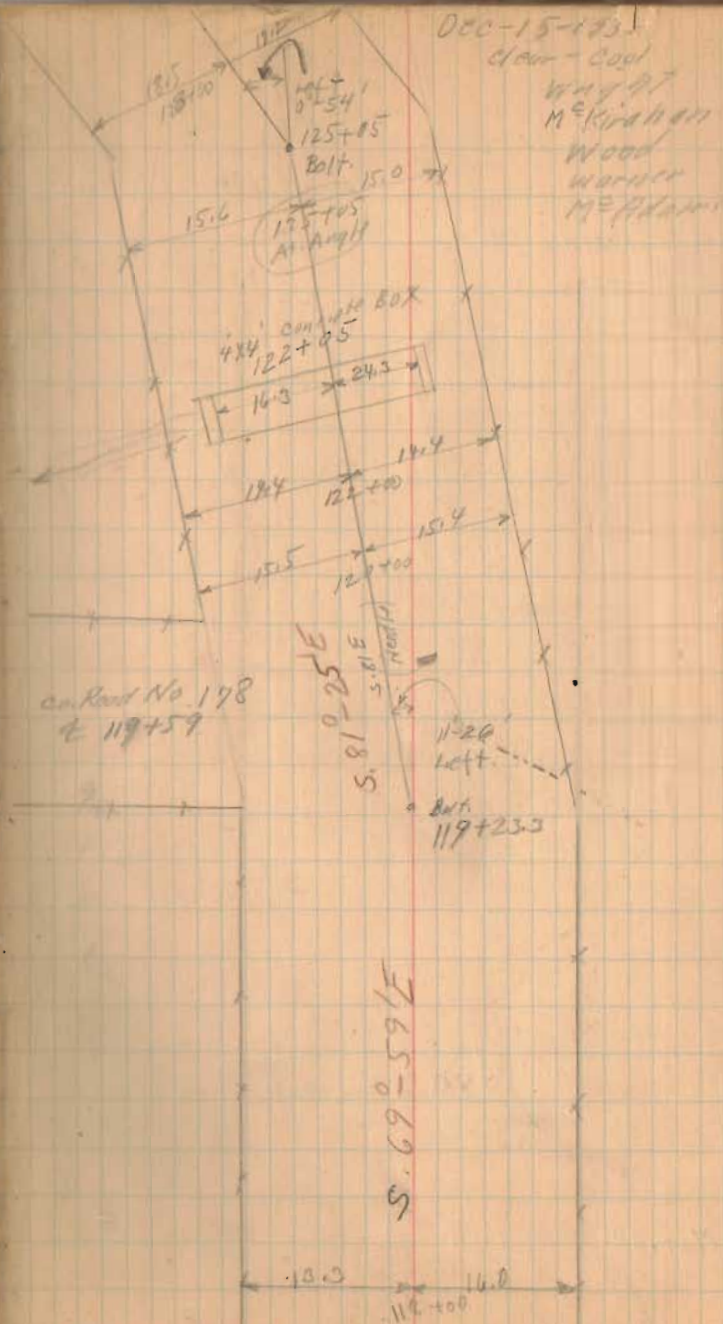 DEC-15-193
Clear - Cool
McKirahan
Wood
Warner
McAdams
18.5
128+00
Left
0°-54'
125+05
Bolt.
15.6
15.0
125+05
At Angle
4'x4' Concrete BOX
122+05
16.3
24.3
14.4
14.4
122+00
15.5
15.4
S. 81°-25'E
S. 81 E
Co. Road No. 178
℄ 119+59
11°-26'
Left.
Bolt.
119+23.3
S. 69°-59'E
13.3
16.0
112+00